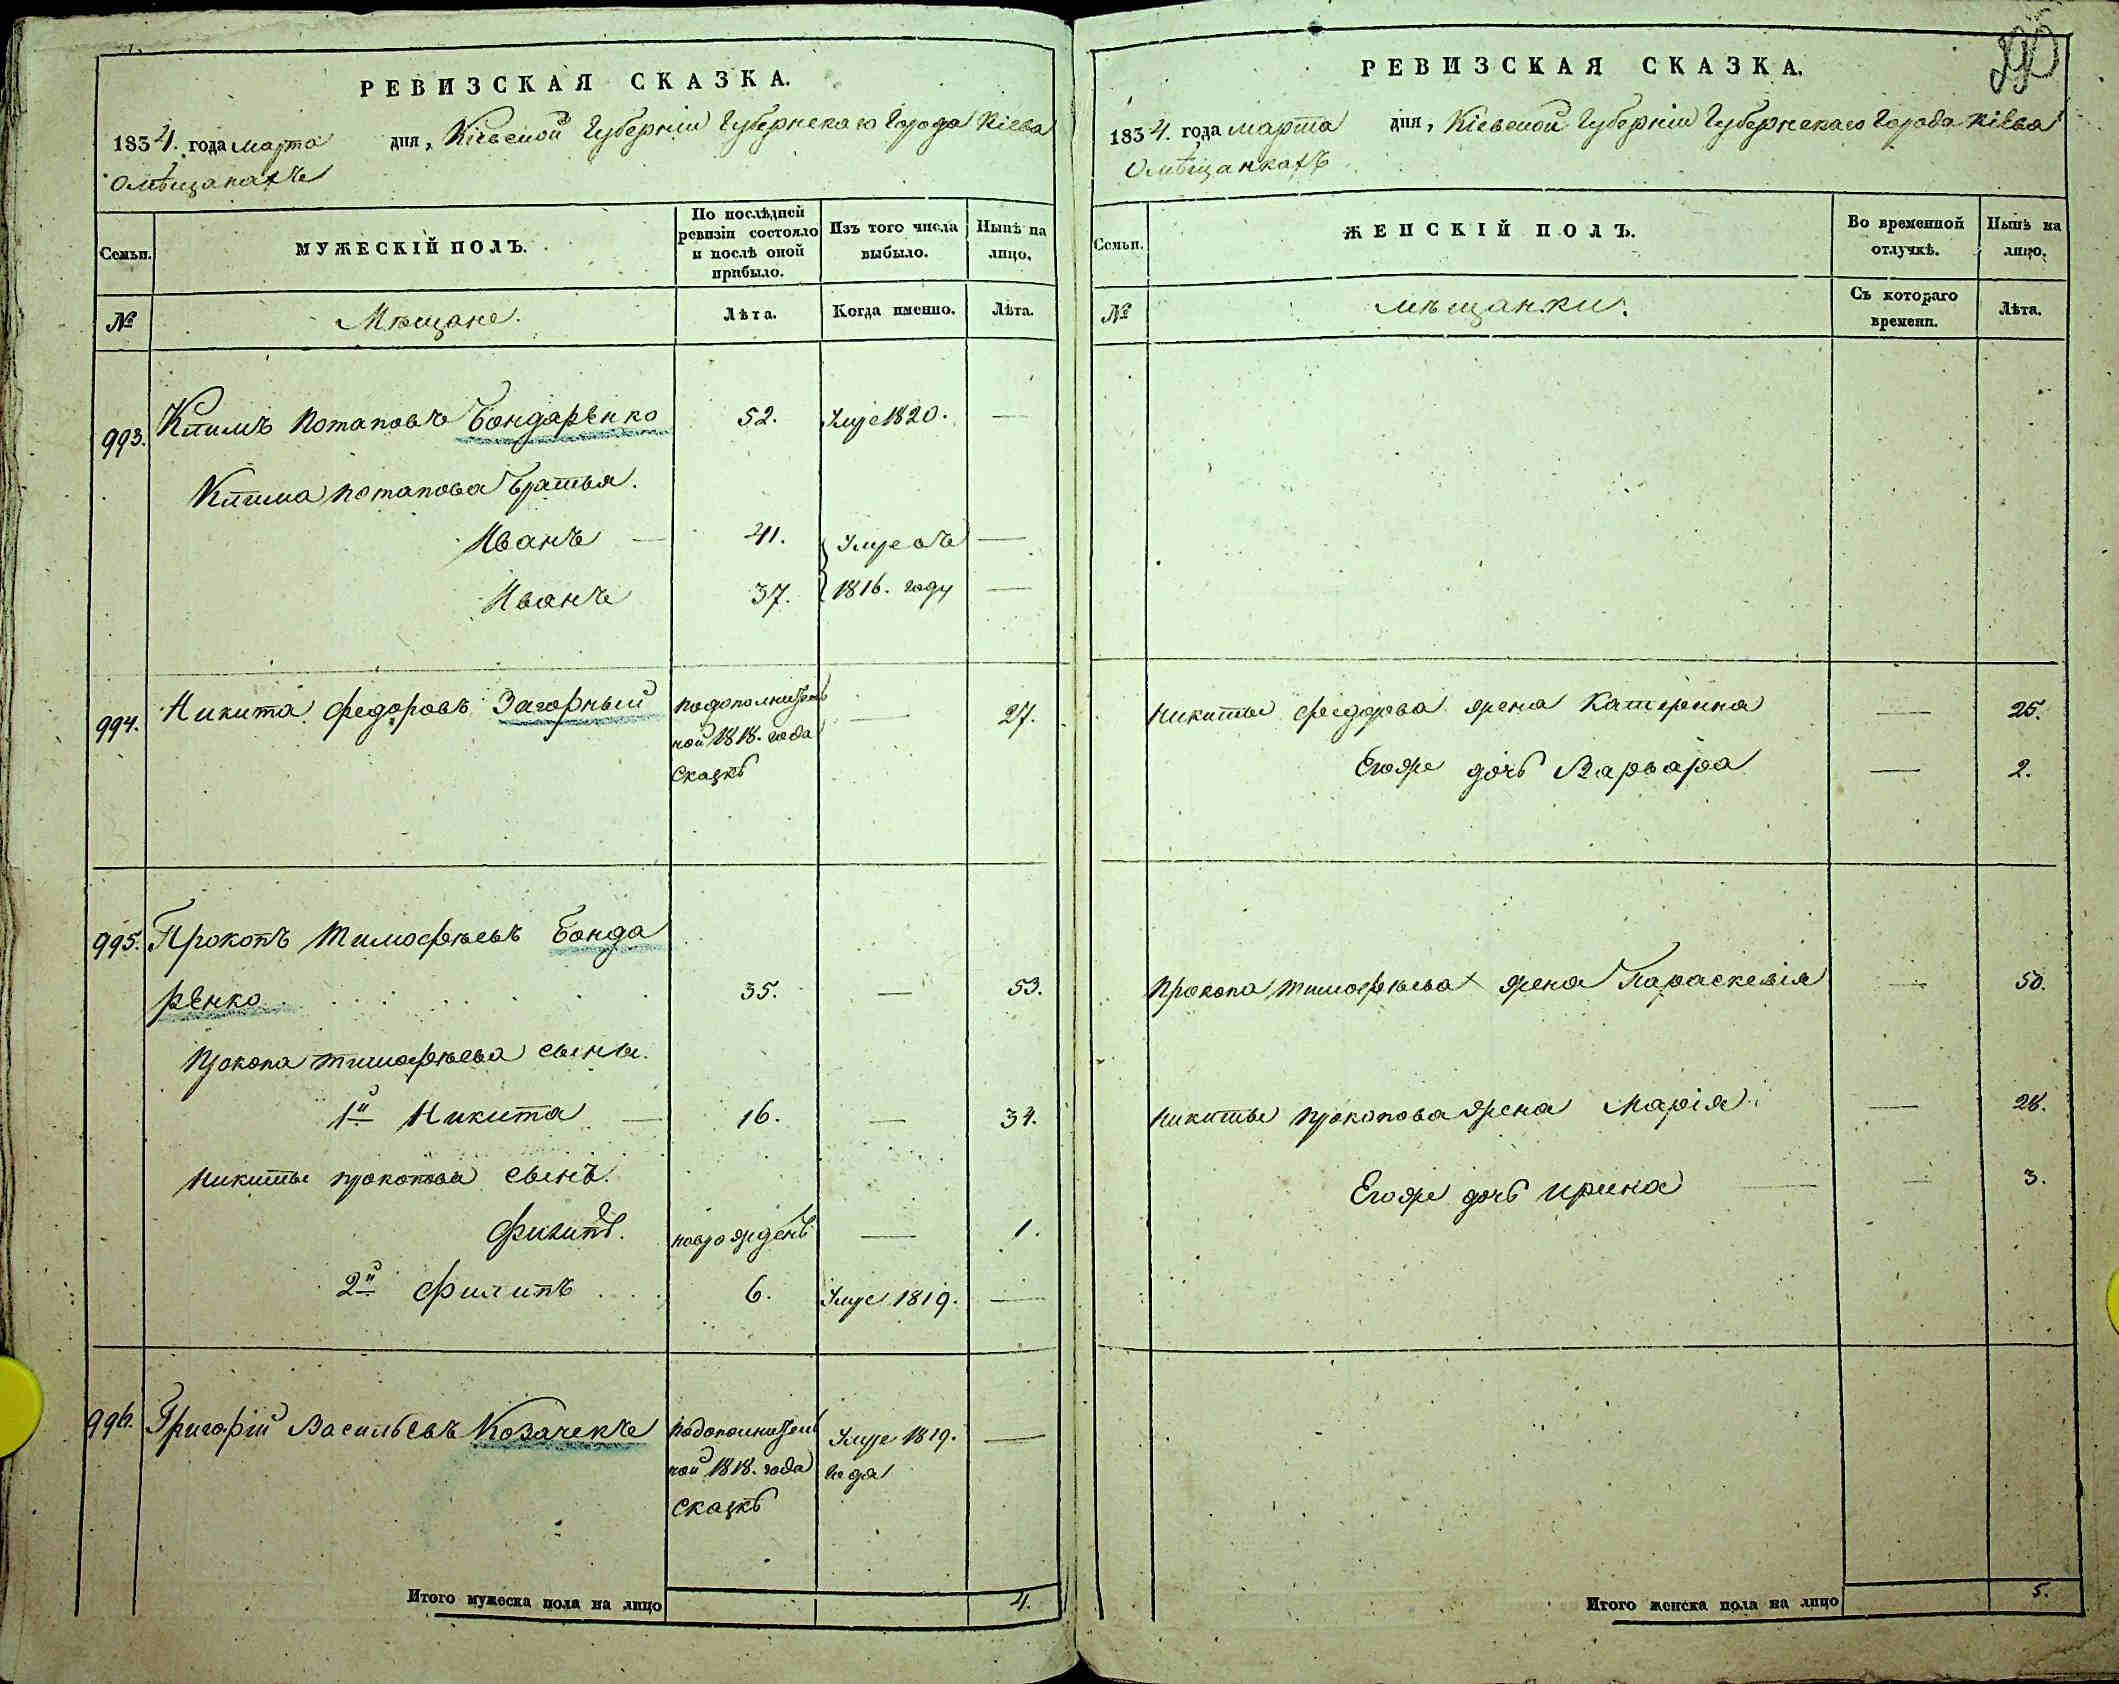 РЕВИЗСКАЯ СКАЗКА.
1834. года марта дня, Кіевской Губерніи Губернскаго Города Кіева
О мѣщанахъ
Семьи.
МУЖЕСКІЙ ПОЛЪ.
По послѣдней ревизіи состояло и послѣ оной прибыло.
Изъ того числа выбыло.
Нынѣ на лицо.
№
Мѣщане.
Лѣта.
Когда именно.
Лѣта.
993. Климъ Потаповъ Бондаренко 52. Умре 1820. —
Клима Потапова братья.
Иванъ — 41. Умре въ —
Иванъ 37. 1816. году —
994. Никита Федоровъ Загорный по дополнитель — 27.
ной 1818. года
сказкѣ
995. Прокопъ Тимофѣевъ Бонда
ренко 35. — 53.
Прокопа Тимофѣева сыны.
1й Никита — 16. — 34.
Никиты Прокопова сынъ.
Филипъ. новорожденъ — 1.
2й Филипъ 6. Умре 1819. —
996. Григорій Васильевъ Козачекъ по дополнитель Умре 1819. —
ной 1818. года года
сказкѣ
Итого мужеска пола на лицо 4.
РЕВИЗСКАЯ СКАЗКА.
1834. года марта дня, Кіевской Губерніи Губернскаго Города Кіева
О мѣщанкахъ
Семьи.
ЖЕНСКІЙ ПОЛЪ.
Во временной отлучкѣ.
Нынѣ на лицо.
№
Мѣщанки.
Съ котораго времени.
Лѣта.
Никиты Федорова жена Катерина — 25.
Его же дочь Варвара — 2.
Прокопа Тимофѣева жена Параскевія — 50.
Никиты Прокопова жена Марія — 28.
Его же дочь Ирина — 3.
Итого женска пола на лицо 5.